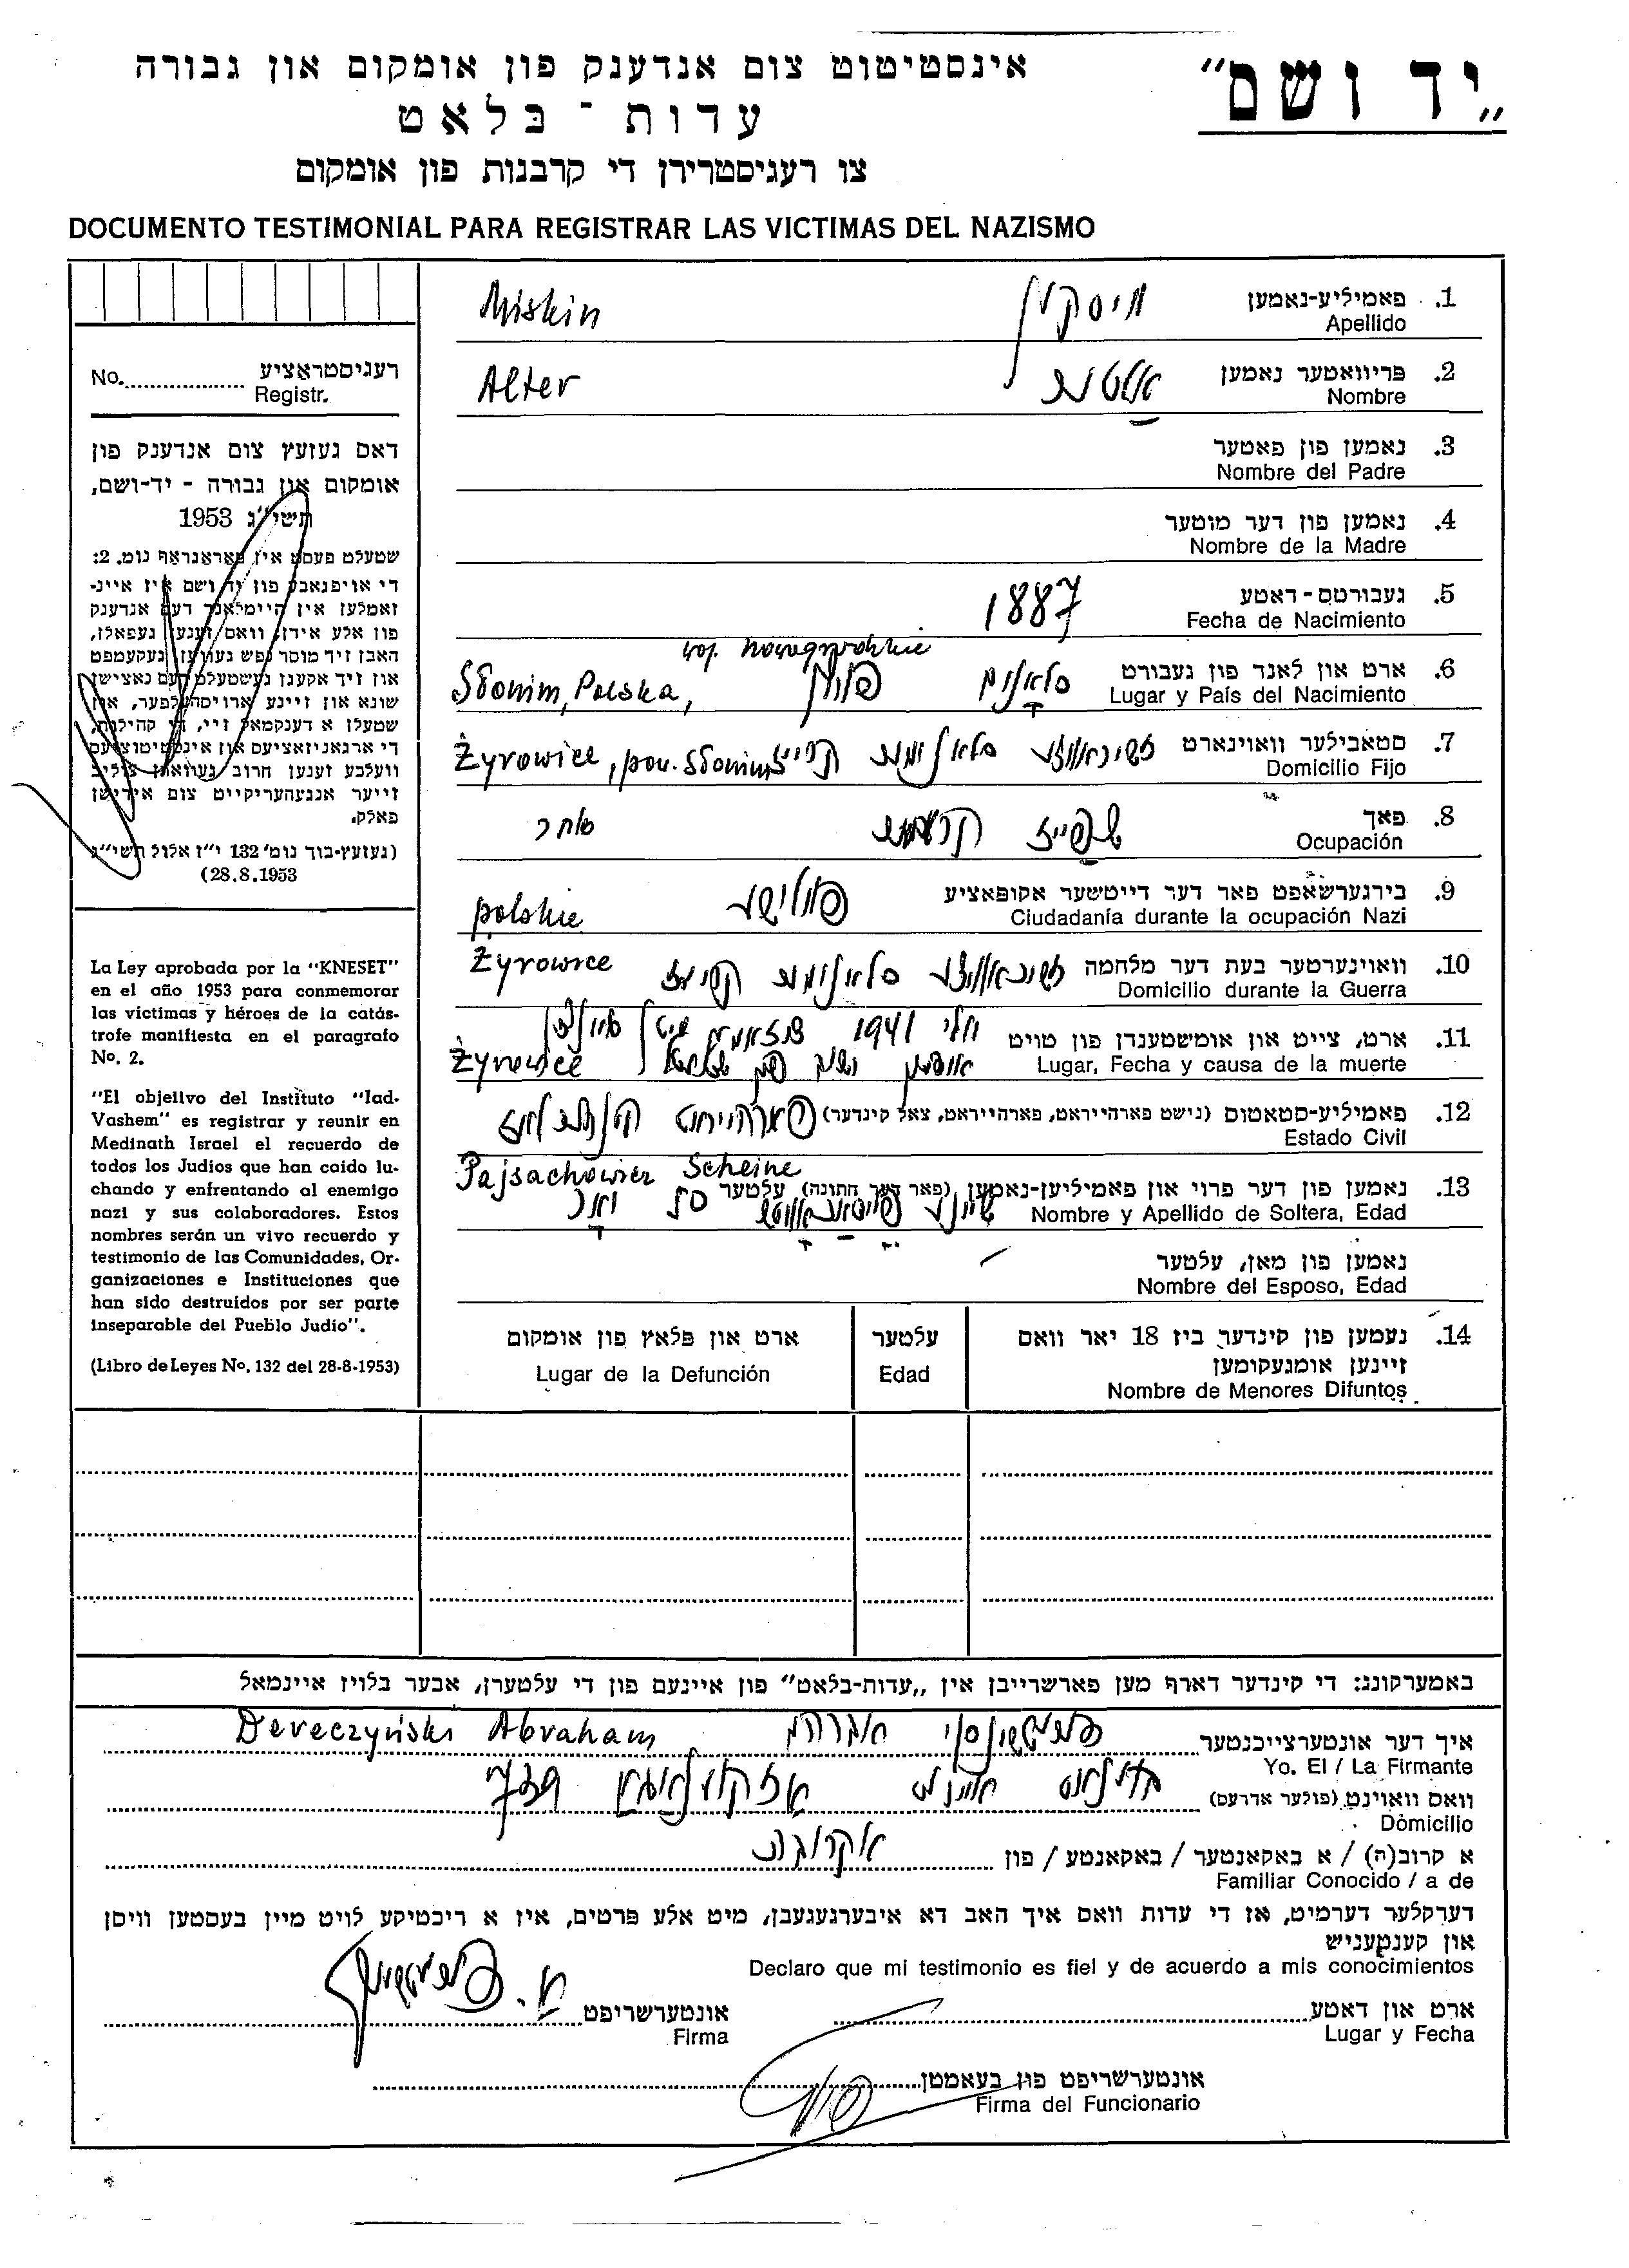 „יד ושם"
אינסטיטוט צום אנדענק פון אומקום און גבורה
עדות - בלאט
צו רעגיסטרירן די קרבנות פון אומקום
DOCUMENTO TESTIMONIAL PARA REGISTRAR LAS VICTIMAS DEL NAZISMO
רעגיסטראציע No.
Registr.
דאס געזעץ צום אנדענק פון
אומקום און גבורה - יד-ושם,
תשי"ג 1953
שטעלט פעסט אין פאראגראף נומ. 2:
די אויפגאבע פון יד ושם איז איינ-
זאמלען אין היימלאנד דעם אנדענק
פון אלע אידן, וואס זענען געפאלן,
האבן זיך מוסר נפש געווען, געקעמפט
און זיך אקעגן געשטעלט דעם נאצישן
שונא און זיינע ארויסהעלפער, און
שטעלן א דענקמאל זיי, די קהילות,
די ארגאניזאציעס און אינסטיטוציעס
וועלכע זענען חרוב געווארן צוליב
זייער אנגעהעריקייט צום אידישן
פאלק.
(געזעץ-בוך נומ' 132 י"ז אלול תשי"ג
28.8.1953)
La Ley aprobada por la "KNESET"
en el año 1953 para conmemorar
las víctimas y héroes de la catás-
trofe manifiesta en el paragrafo
No. 2.
"El objetivo del Instituto "Iad-
Vashem" es registrar y reunir en
Medinath Israel el recuerdo de
todos los Judios que han caido lu-
chando y enfrentando al enemigo
nazi y sus colaboradores. Estos
nombres serán un vivo recuerdo y
testimonio de las Comunidades, Or-
ganizaciones e Instituciones que
han sido destruídos por ser parte
inseparable del Pueblo Judio".
(Libro de Leyes No. 132 del 28-8-1953)
1. פאמיליע-נאמען מיסקין Miskin
Apellido
2. פריוואטער נאמען אלטער Alter
Nombre
3. נאמען פון פאטער
Nombre del Padre
4. נאמען פון דער מוטער
Nombre de la Madre
5. געבורטס-דאטע 1887
Fecha de Nacimiento
6. ארט און לאנד פון געבורט סלאנים פוילן Słonim, Polska,
Lugar y País del Nacimiento
7. סטאבילער וואוינארט Żyrowice, pow. Słonim
Domicilio Fijo
8. פאך שפייז קרעמער סוחר
Ocupación
9. בירגערשאפט פאר דער דייטשער אקופאציע פוילישע polskie
Ciudadanía durante la ocupación Nazi
10. וואוינערטער בעת דער מלחמה Żyrowice
Domicilio durante la Guerra
11. ארט, צייט און אומשטענדן פון טויט יולי 1941 Żyrowice
Lugar, Fecha y causa de la muerte
12. פאמיליע-סטאטוס (נישט פארהייראט, פארהייראט, צאל קינדער) פארהייראט קינדערלויז
Estado Civil
Pajsachowicz Scheine
13. נאמען פון דער פרוי און פאמיליען-נאמען (פאר דער חתונה) עלטער
Nombre y Apellido de Soltera, Edad
נאמען פון מאן, עלטער
Nombre del Esposo, Edad
14. נעמען פון קינדער ביז 18 יאר וואס עלטער ארט און פלאץ פון אומקום
זיינען אומגעקומען Edad Lugar de la Defunción
Nombre de Menores Difuntos
באמערקונג: די קינדער דארף מען פארשרייבן אין „עדות-בלאט" פון איינעם פון די עלטערן, אבער בלויז איינמאל
איך דער אונטערצייכנטער אברהם Dereczyński Abraham
Yo. El / La Firmante
וואס וואוינט (פולער אדרעס)
Domicilio
א קרוב(ה) / א באקאנטער / באקאנטע / פון
Familiar Conocido / a de
דערקלער דערמיט, אז די עדות וואס איך האב דא איבערגעגעבן, מיט אלע פרטים, איז א ריכטיקע לויט מיין בעסטען וויסן
און קענטעניש
Declaro que mi testimonio es fiel y de acuerdo a mis conocimientos
ארט און דאטע אונטערשריפט
Lugar y Fecha Firma
אונטערשריפט פון בעאמטן
Firma del Funcionario